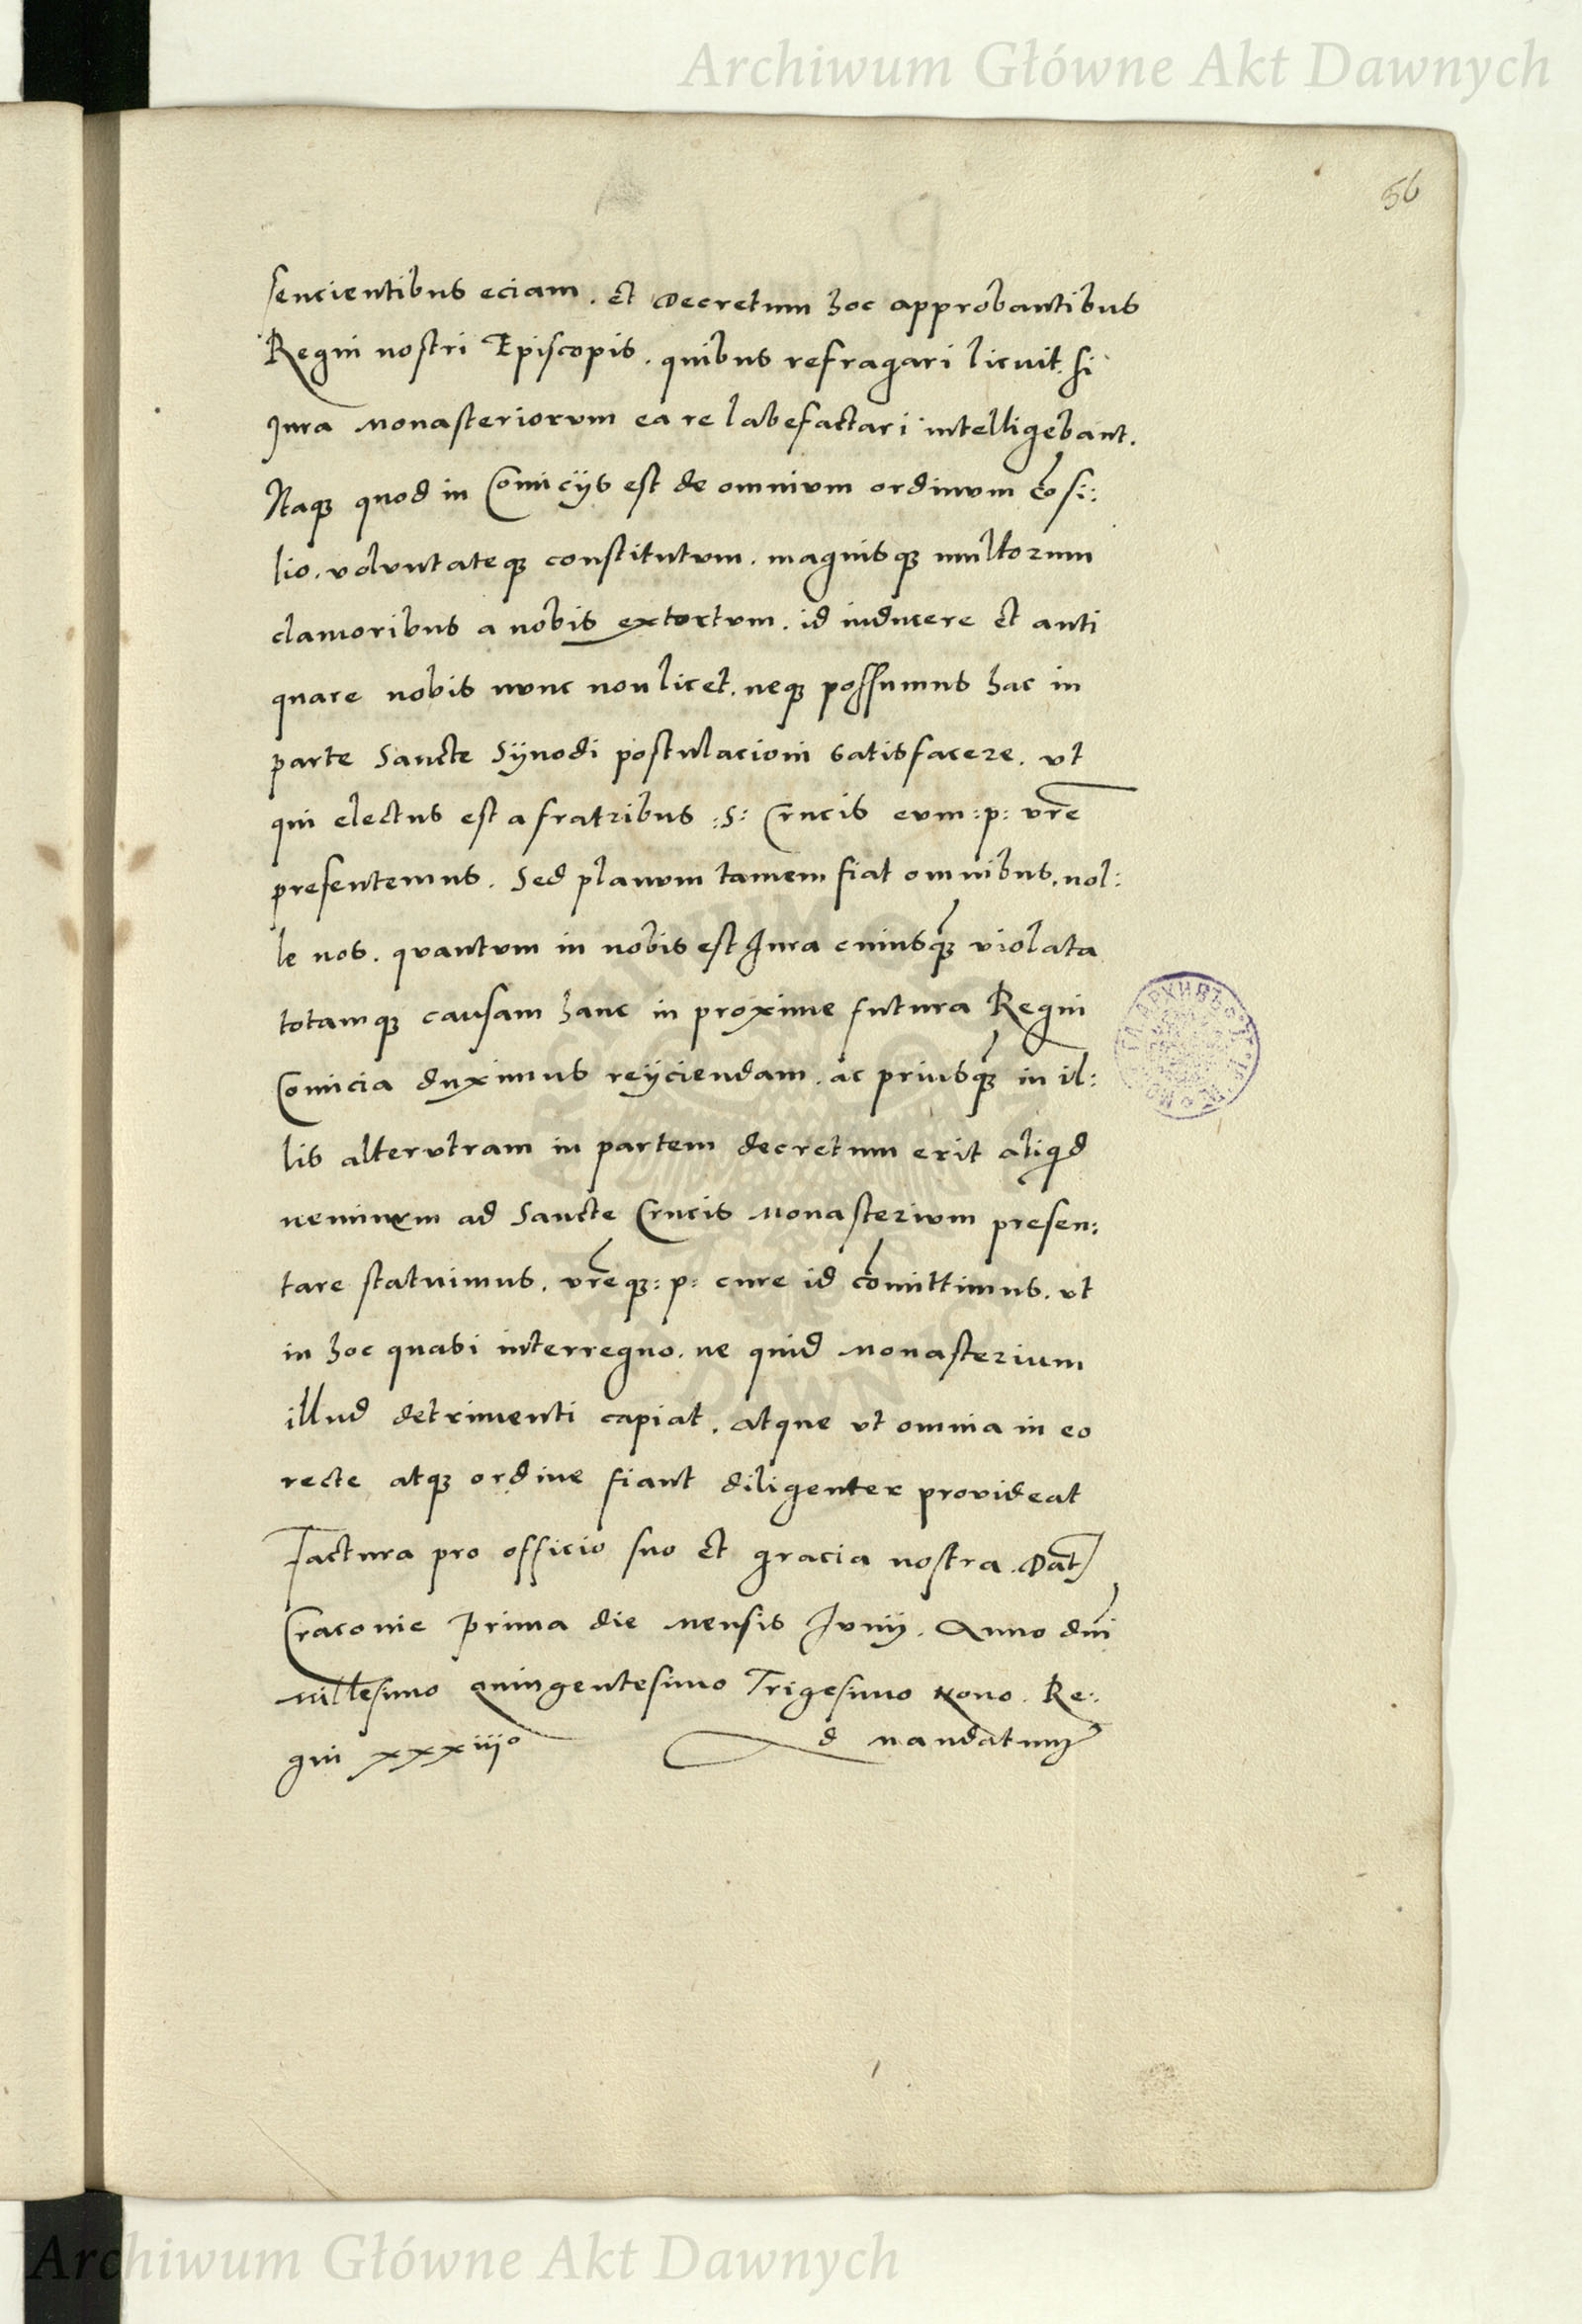 Archiwum Główne Akt Dawnych
56
sencientibus eciam. et Decretum hoc approbantibus
Regni nostri Episcopis. quibus refragari licuit. si
Jura Monasteriorum ea re labefactari intelligebant.
Itaqȝ quod in Comicijs est de omnium ordinum cōsi:
lio. voluntateqȝ constitutum. magnisqȝ multorum
clamoribus a nobis extortum. id inducere et anti
quare nobis nunc non licet. neqȝ possumus hac in
parte Sancte Synodi postulacioni satisfacere. vt
qui electus est a fratribus :S: Crucis eum :p: vrē
presentemus. Sed planum tamem fiat omnibus. nol:
le nos. quantum in nobis est Jura cuiusqȝ violata
totamqȝ causam hanc in proxime futura Regni
Comicia duximus reijciendam. ac priusqȝ in il:
lis altervtram in partem decretum erit aliqid
neminem ad Sancte Crucis Monasterium presen:
tare statuimus. vrēqȝ :p: cure id cōmittimus. vt
in hoc quasi interregno. ne quid Monasterium
illud detrimenti capiat. atque vt omnia in eo
recte atqȝ ordine fiant diligenter provideat
Factura pro officio suo et gracia nostra. Dat
Cracovie Prima die Mensis Junij. Anno dnī
Millesimo Quingentesimo Trigesimo Nono. Re:
gni xxxiij° d Mandatum
Archiwum Główne Akt Dawnych